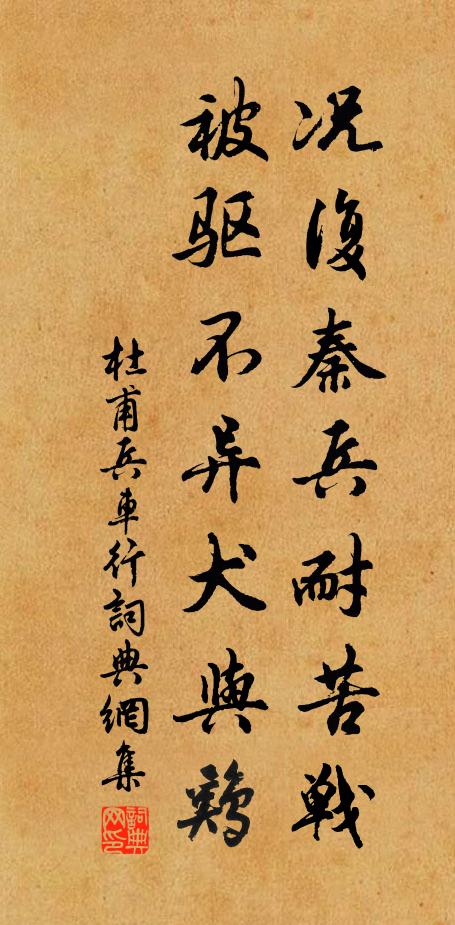 况復秦兵耐苦戰
被驱不异犬與鷄
杜甫兵車行詞典網集
詞典网印